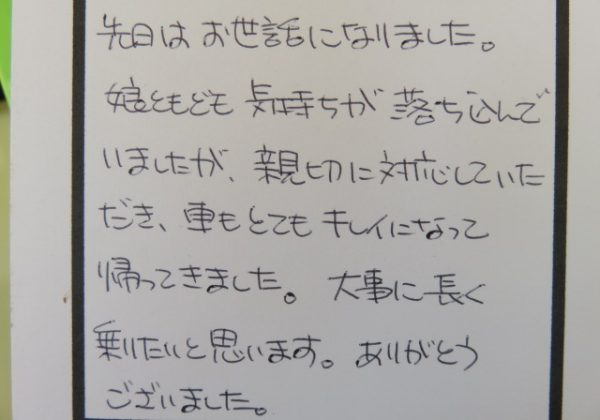 先日は お世話になりました。
娘ともども 気持ちが 落ち込んで
いましたが、親切に対応していた
だき、車もとても キレイになって
帰ってきました。 大事に長く
乗りたいと思います。ありがとう
ございました。